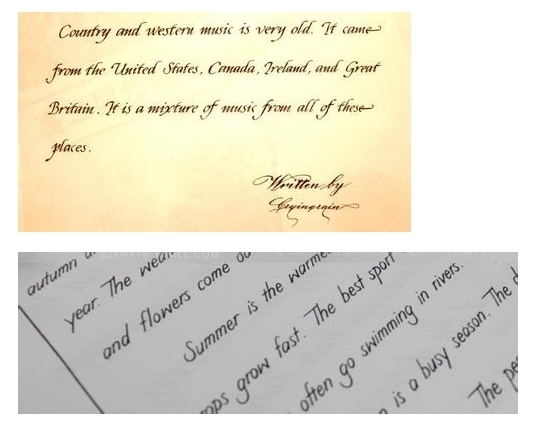 Country and western music is very old. It came
from the United States, Canada, Ireland, and Great
Britain. It is a mixture of music from all of these
places.
Written by
Cryingrain
autumn
year. The
and flowers come
Summer is the
grow fast. The best sport
often go swimming in rivers.
is a busy season. The
The